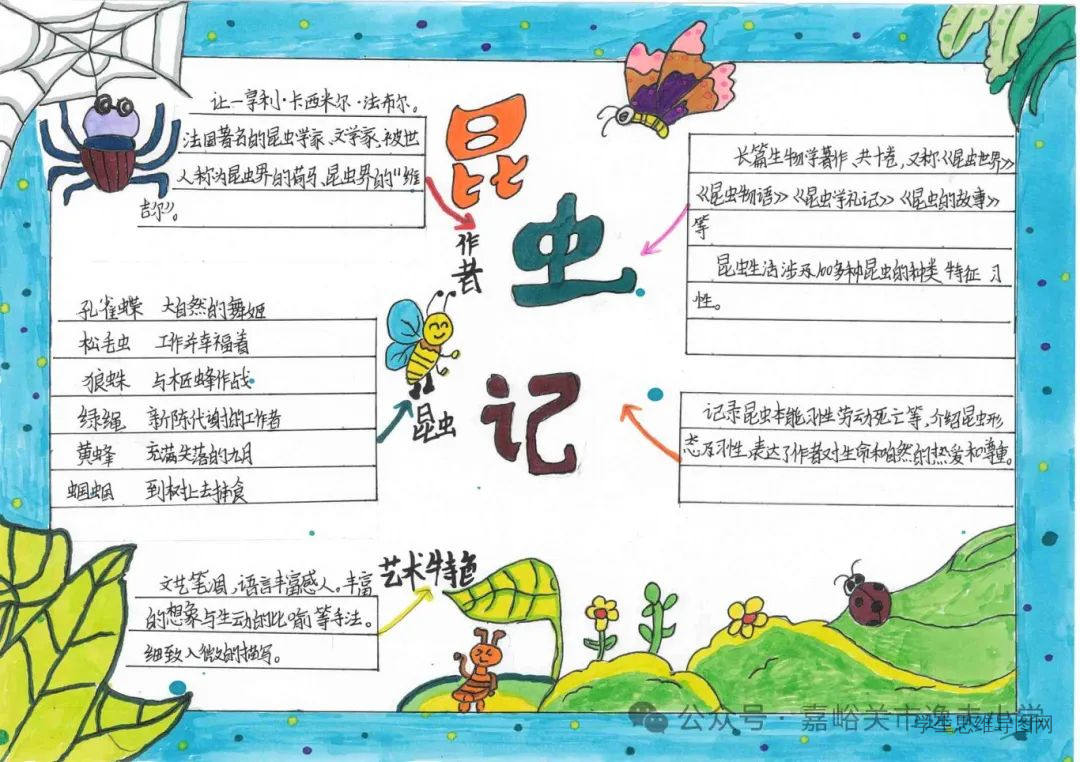 昆
虫
记
让-亨利·卡西米尔·法布尔。
法国著名的昆虫学家、文学家、被世
人称为昆虫界的荷马、昆虫界的“维
吉尔”。
作者
长篇生物学著作,共十卷,又称《昆虫世界》
《昆虫物语》《昆虫学札记》《昆虫的故事》
等
昆虫生活涉及100多种昆虫的种类 特征 习
性。
孔雀蝶 大自然的舞姬
松毛虫 工作并幸福着
狼蛛 与木匠蜂作战
绿绳 新陈代谢的工作者
黄蜂 充满失落的九月
蝈蝈 到树上去捕食
昆虫
记录昆虫本能习性劳动死亡等,介绍昆虫形
态及习性,表达了作者对生命和自然的热爱和尊重。
艺术特色
文艺笔调,语言丰富感人。丰富
的想象与生动的比喻等手法。
细致入微的描写。
公众号·嘉峪关市逸夫小学
学生思维导图网